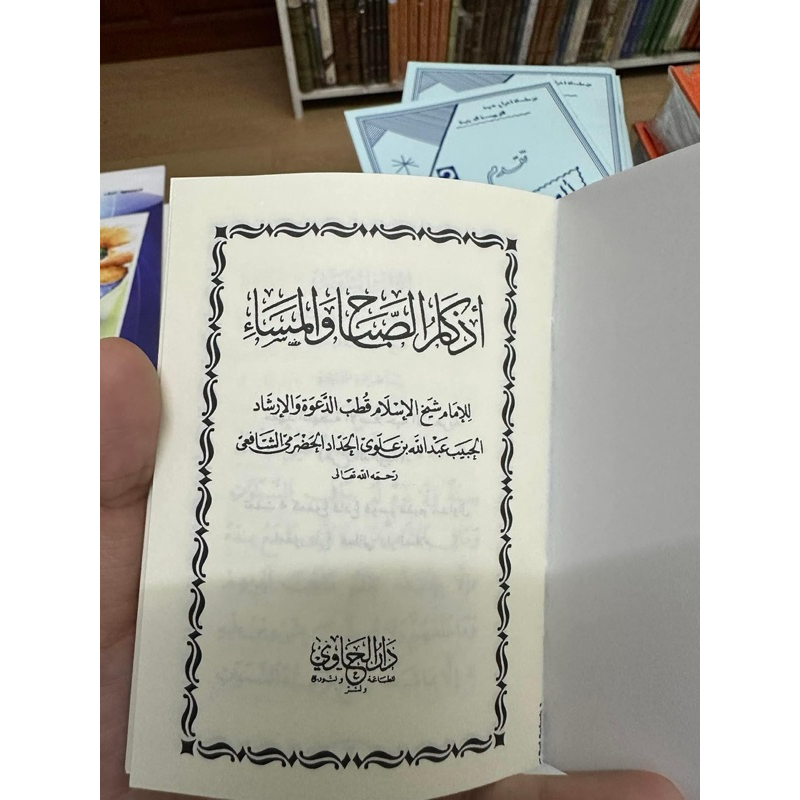 تقدم
أذكار الصباح والمساء
للإمام شيخ الإسلام قطب الدعوة والإرشاد
الحبيب عبد الله بن علوي الحداد الحضرمي الشافعي
رحمه الله تعالى
دار الحاوي
للطباعة
ونشر